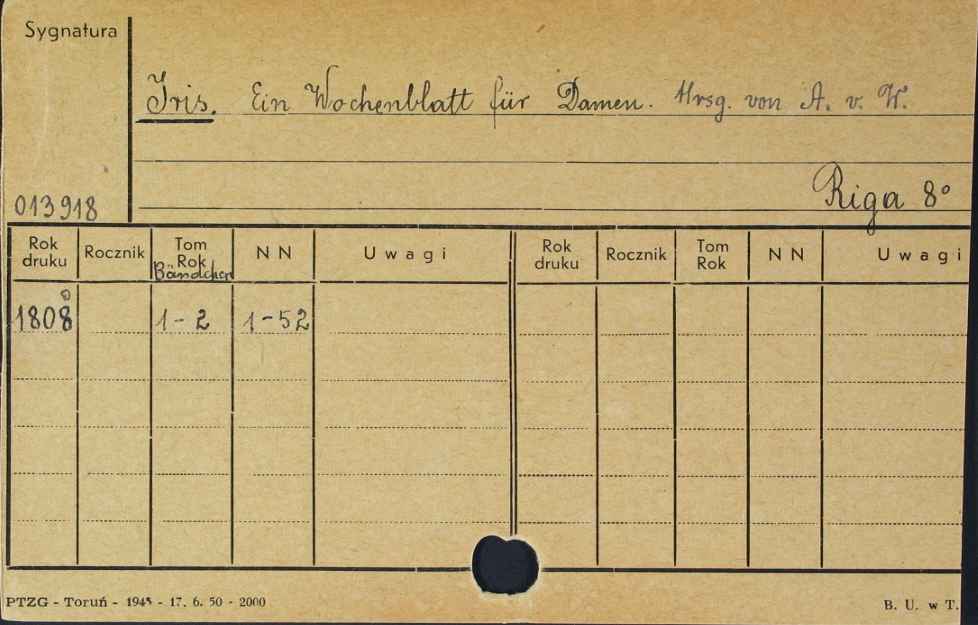 Sygnatura
Iris. Ein Wochenblatt für Damen. Hrsg. von A. v. W.
Riga 8°
013918
Rok druku Rocznik Tom Rok Bändchen N N Uwagi Rok druku Rocznik Tom Rok N N Uwagi
1808 1-2 1-52
PTZG - Toruń - 1945 - 17. 6. 50 - 2000 B. U. w T.